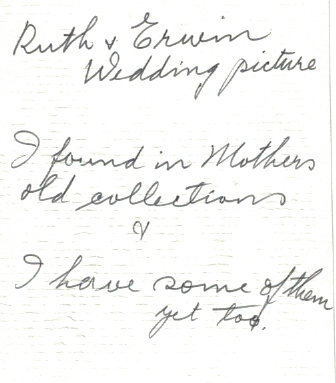 Ruth & Erwin
Wedding picture
I found in Mothers
old collections
&
I have some of them
yet too.